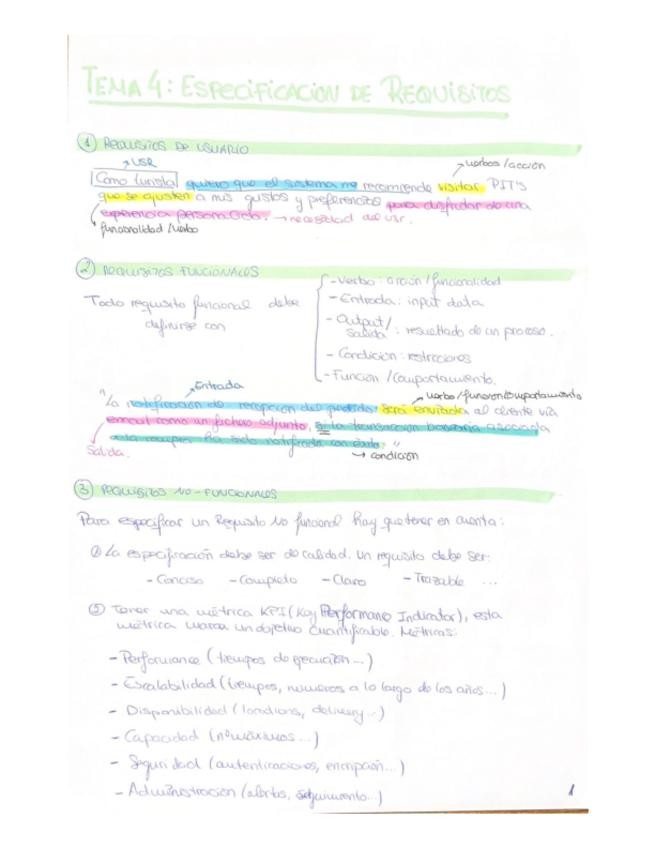 TEMA 4: ESPECIFICACION DE REQUISITOS
① REQUISITOS DE USUARIO
USR
verbos /acción
Como turista quiero que el sistema me recomiende visitar PIT's
que se ajusten a mis gustos y preferencias para disfrutar de una
experiencia personalizada. → necesidad del usr.
funcionalidad /verbo
② REQUISITOS FUNCIONALES
Todo requisito funcional debe
definirse con
- Verbo: acción / funcionalidad
- Entrada: input data
- Output/
salida: resultado de un proceso.
- Condición: restricciones
- Función /Comportamiento.
Entrada
verbo/función/comportamiento
"La notificación de recepción del pedido será enviada al cliente vía
email como un fichero adjunto, si la transacción bancaria asociada
a la compra ha sido notificada con éxito."
Salida.
→ condición
③ REQUISITOS NO-FUNCIONALES
Para especificar un Requisito No funcional hay que tener en cuenta:
① La especificación debe ser de calidad. Un requisito debe ser:
- Conciso - Completo - Claro - Trazable ...
② Tener una métrica KPI (Key Performance Indicator), esta
métrica marca un objetivo cuantificable. Métricas:
- Performance (tiempos de ejecución...)
- Escalabilidad (tiempos, números a lo largo de los años...)
- Disponibilidad (locations, delivery...)
- Capacidad (nº máximos...)
- Seguridad (autenticaciones, encripción...)
- Administración (alertas, seguimiento...)
1